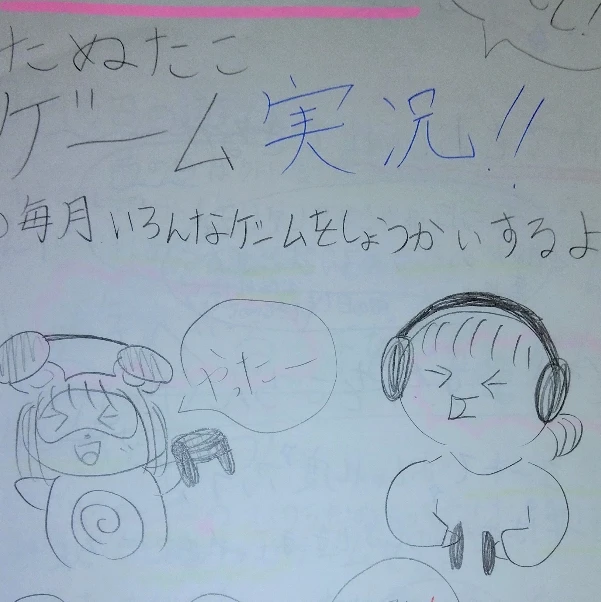 たぬたこ
ゲーム実況!!
毎月いろんなゲームをしょうかいするよ
やったー